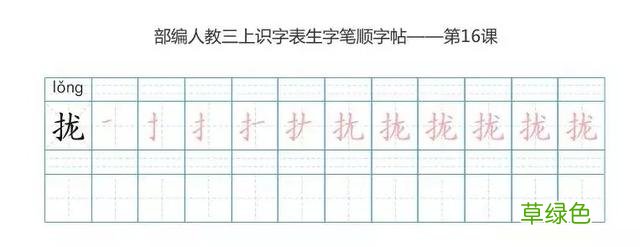 部编人教三上识字表生字笔顺字帖——第16课
lǒng
拢 拢 拢 拢 拢 拢
草绿色